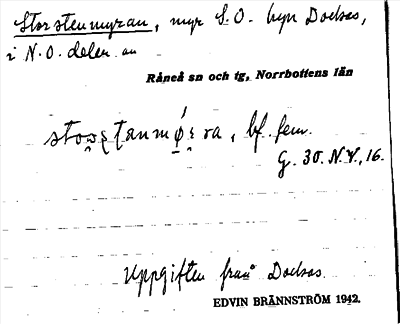 Storstenmyran, myr S.O. byn Doelsas,
i N.O. delen av
Råneå sn och tg, Norrbottens län
bf. fem.
G. 30. N.V., 16.
Uppgiften från Doelsas
EDVIN BRÄNNSTRÖM 1942.